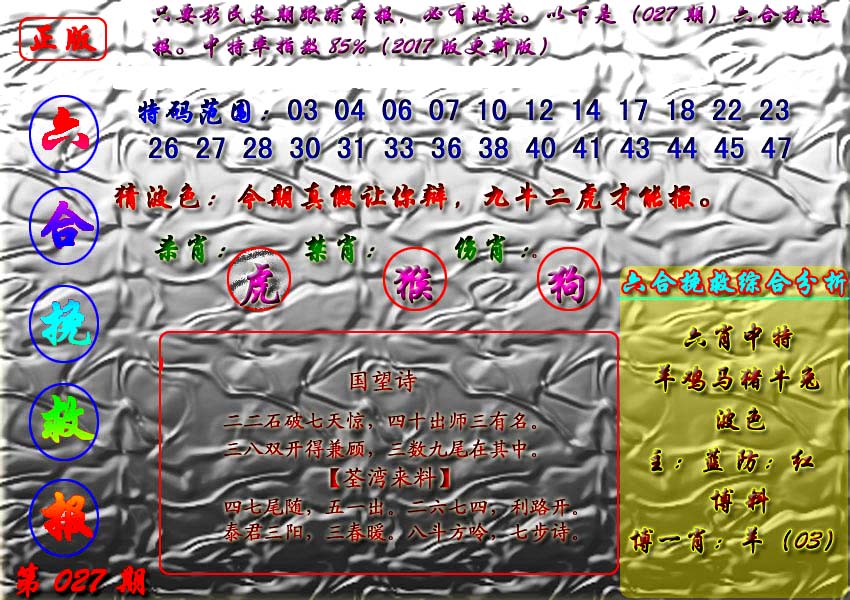 正版
只要彩民长期跟踪本报，必有收获。以下是（027期）六合挽救
报。中特率指数85%（2017版更新版）
六合挽救报
第027期
特码范围：03 04 06 07 10 12 14 17 18 22 23
26 27 28 30 31 33 36 38 40 41 43 44 45 47
猜波色：今期真假让你辩，九牛二虎才能报。
杀肖：虎 禁肖：猴 伤肖：狗
国望诗
二二石破七天惊，四十出师三有名。
二八双开得兼顾，三数九尾在其中。
【荃湾来料】
四七尾随，五一出。二六七四，利路开。
泰君三阳，三春暖。八斗方吟，七步诗。
六合挽救综合分析
六肖中特
羊鸡马猪牛兔
波色
主：蓝防：红
博料
博一肖：羊（03）